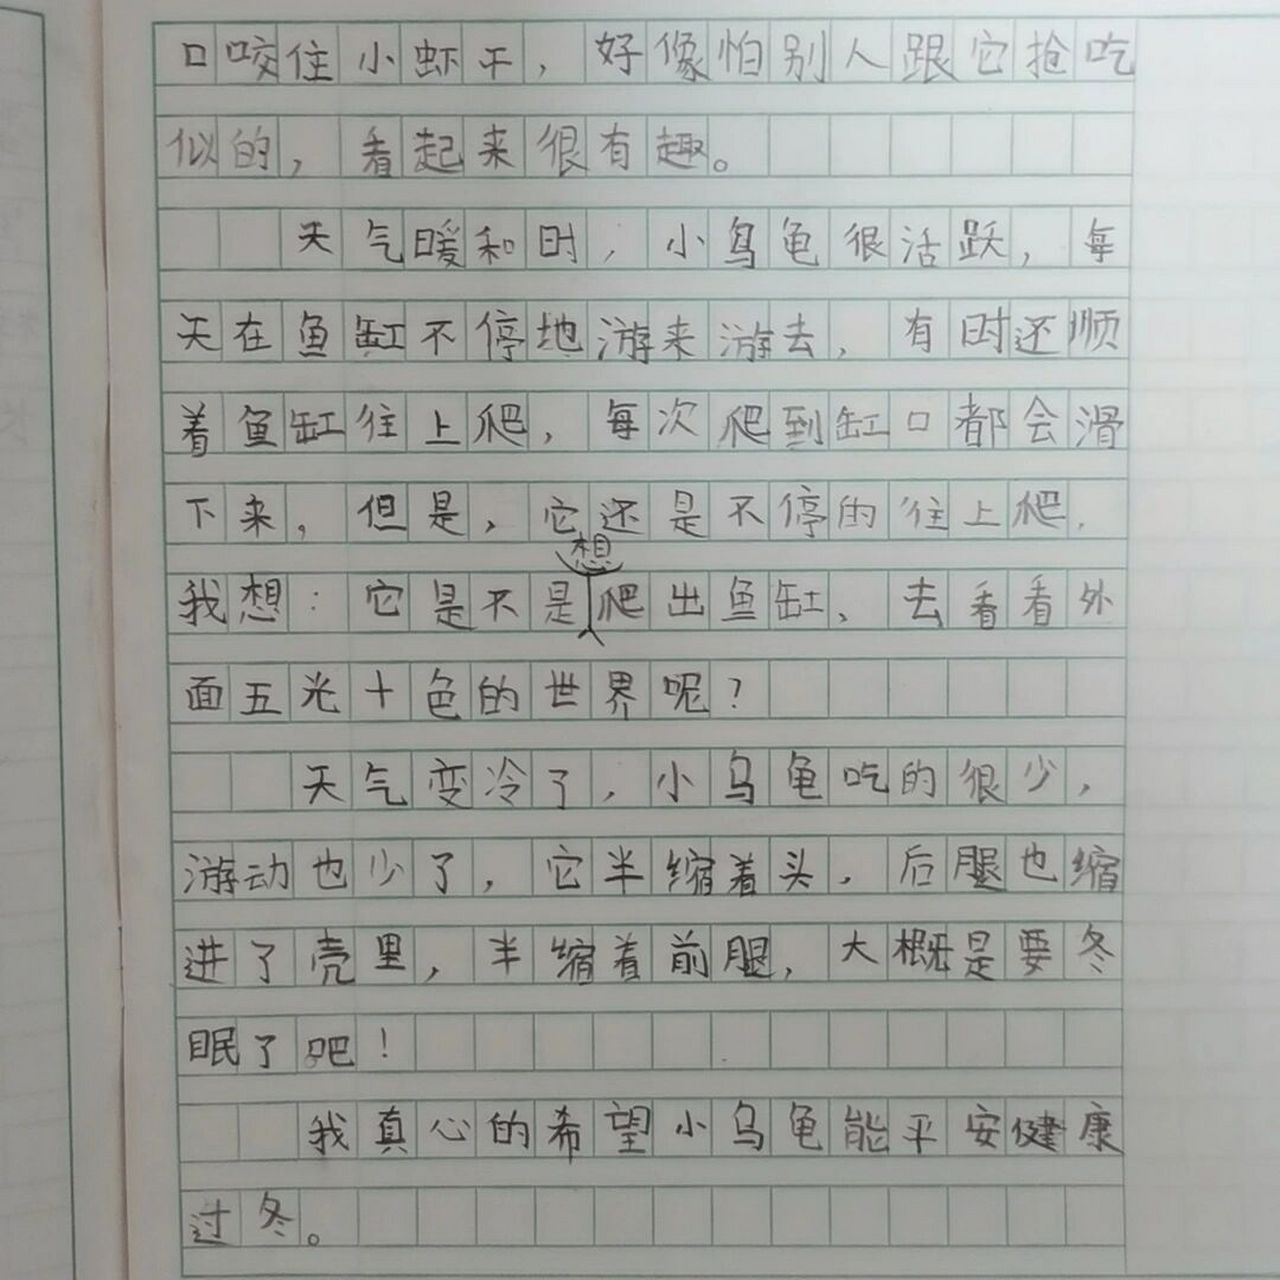 口咬住小虾干，好像怕别人跟它抢吃
似的，看起来很有趣。
天气暖和时，小乌龟很活跃，每
天在鱼缸不停地游来游去，有时还顺
着鱼缸往上爬，每次爬到缸口都会滑
下来，但是，它还是不停的往上爬，
我想：它是不是想爬出鱼缸、去看看外
面五光十色的世界呢？
天气变冷了，小乌龟吃的很少，
游动也少了，它半缩着头，后腿也缩
进了壳里，半缩着前腿，大概是要冬
眠了吧！
我真心的希望小乌龟能平安健康
过冬。